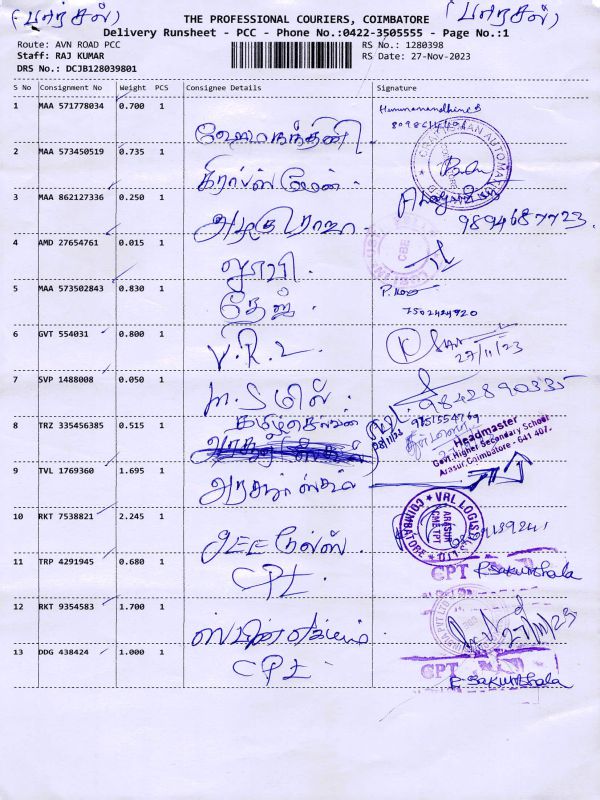 (பார்சல்) THE PROFESSIONAL COURIERS, COIMBATORE (பார்சல்)
Delivery Runsheet - PCC - Phone No.:0422-3505555 - Page No.:1
Route: AVN ROAD PCC RS No.: 1280398
Staff: RAJ KUMAR RS Date: 27-Nov-2023
DRS No.: DCJB128039801
S No Consignment No Weight PCS Consignee Details Signature
1 MAA 571778034 0.700 1
2 MAA 573450519 0.735 1
3 MAA 862127336 0.250 1 அழகு ராஜா 9894687723
4 AMD 27654761 0.015 1
5 MAA 573502843 0.830 1 தேஜ். 7502424920
6 GVT 554031 0.800 1 V.R.L. 27/11/23
7 SVP 1488008 0.050 1 M.S மில். 9842890335
8 TRZ 335456385 0.515 1
Headmaster
Govt Higher Secondary School
Arasur, Coimbatore - 641 407.
9 TVL 1769360 1.695 1 அரசூர் ஸ்கூல்
10 RKT 7538821 2.245 1 COIMBATORE VRL LOGIS ARASUR CMB.TPT
11 TRP 4291945 0.680 1 CPT CPT R.Sakunthala
12 RKT 9354583 1.700 1 27/11/23
13 DDG 438424 1.000 1 CPT CPT R.Sakunthala